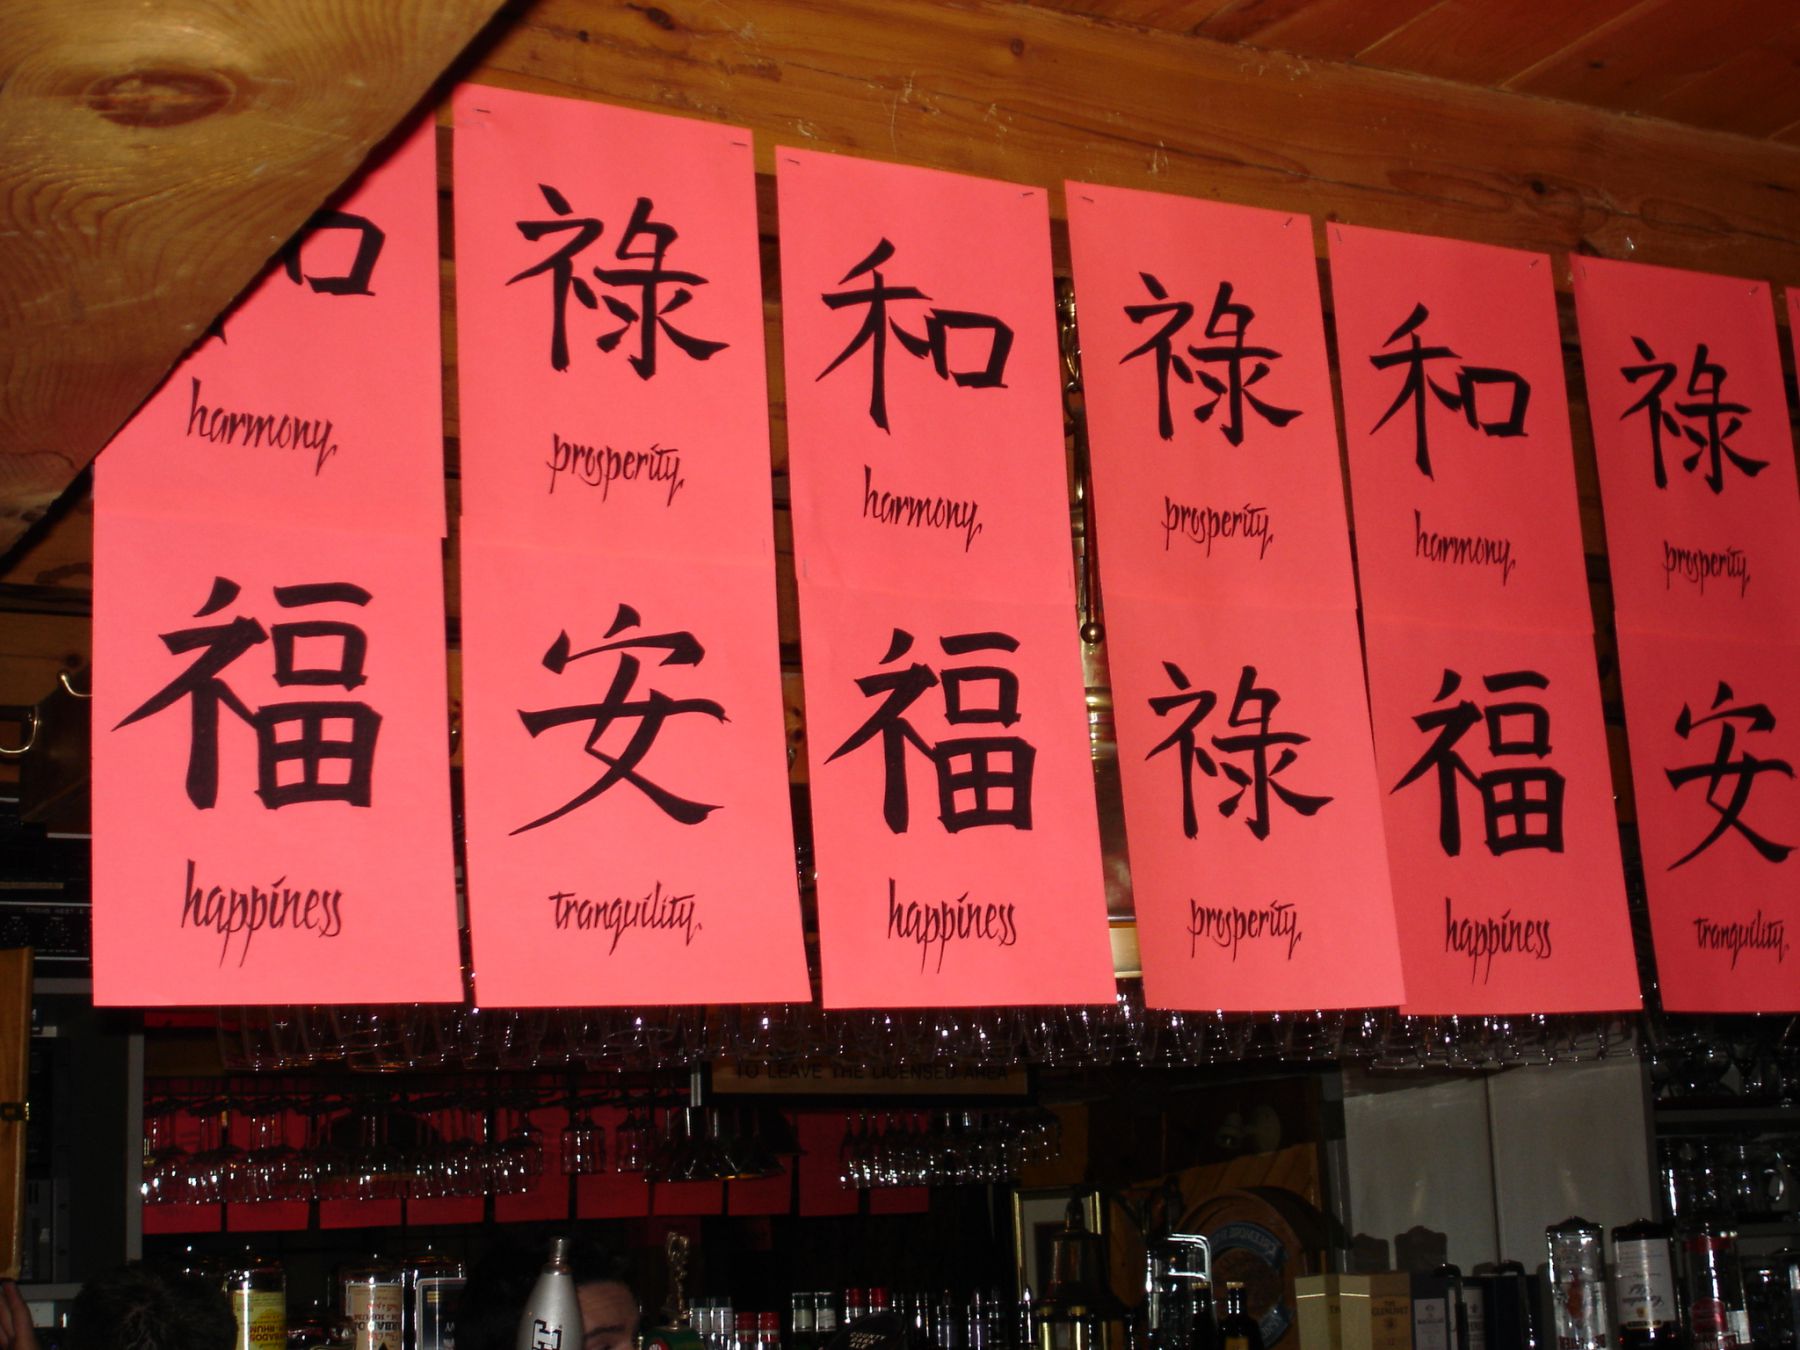 禄
和
禄
和
禄
harmony
prosperity
harmony
prosperity
harmony
prosperity
福
安
福
禄
福
安
happiness
tranquility
happiness
prosperity
happiness
tranquility
TO LEAVE THE LICENSED AREA
COUNTY
DARK
ALE